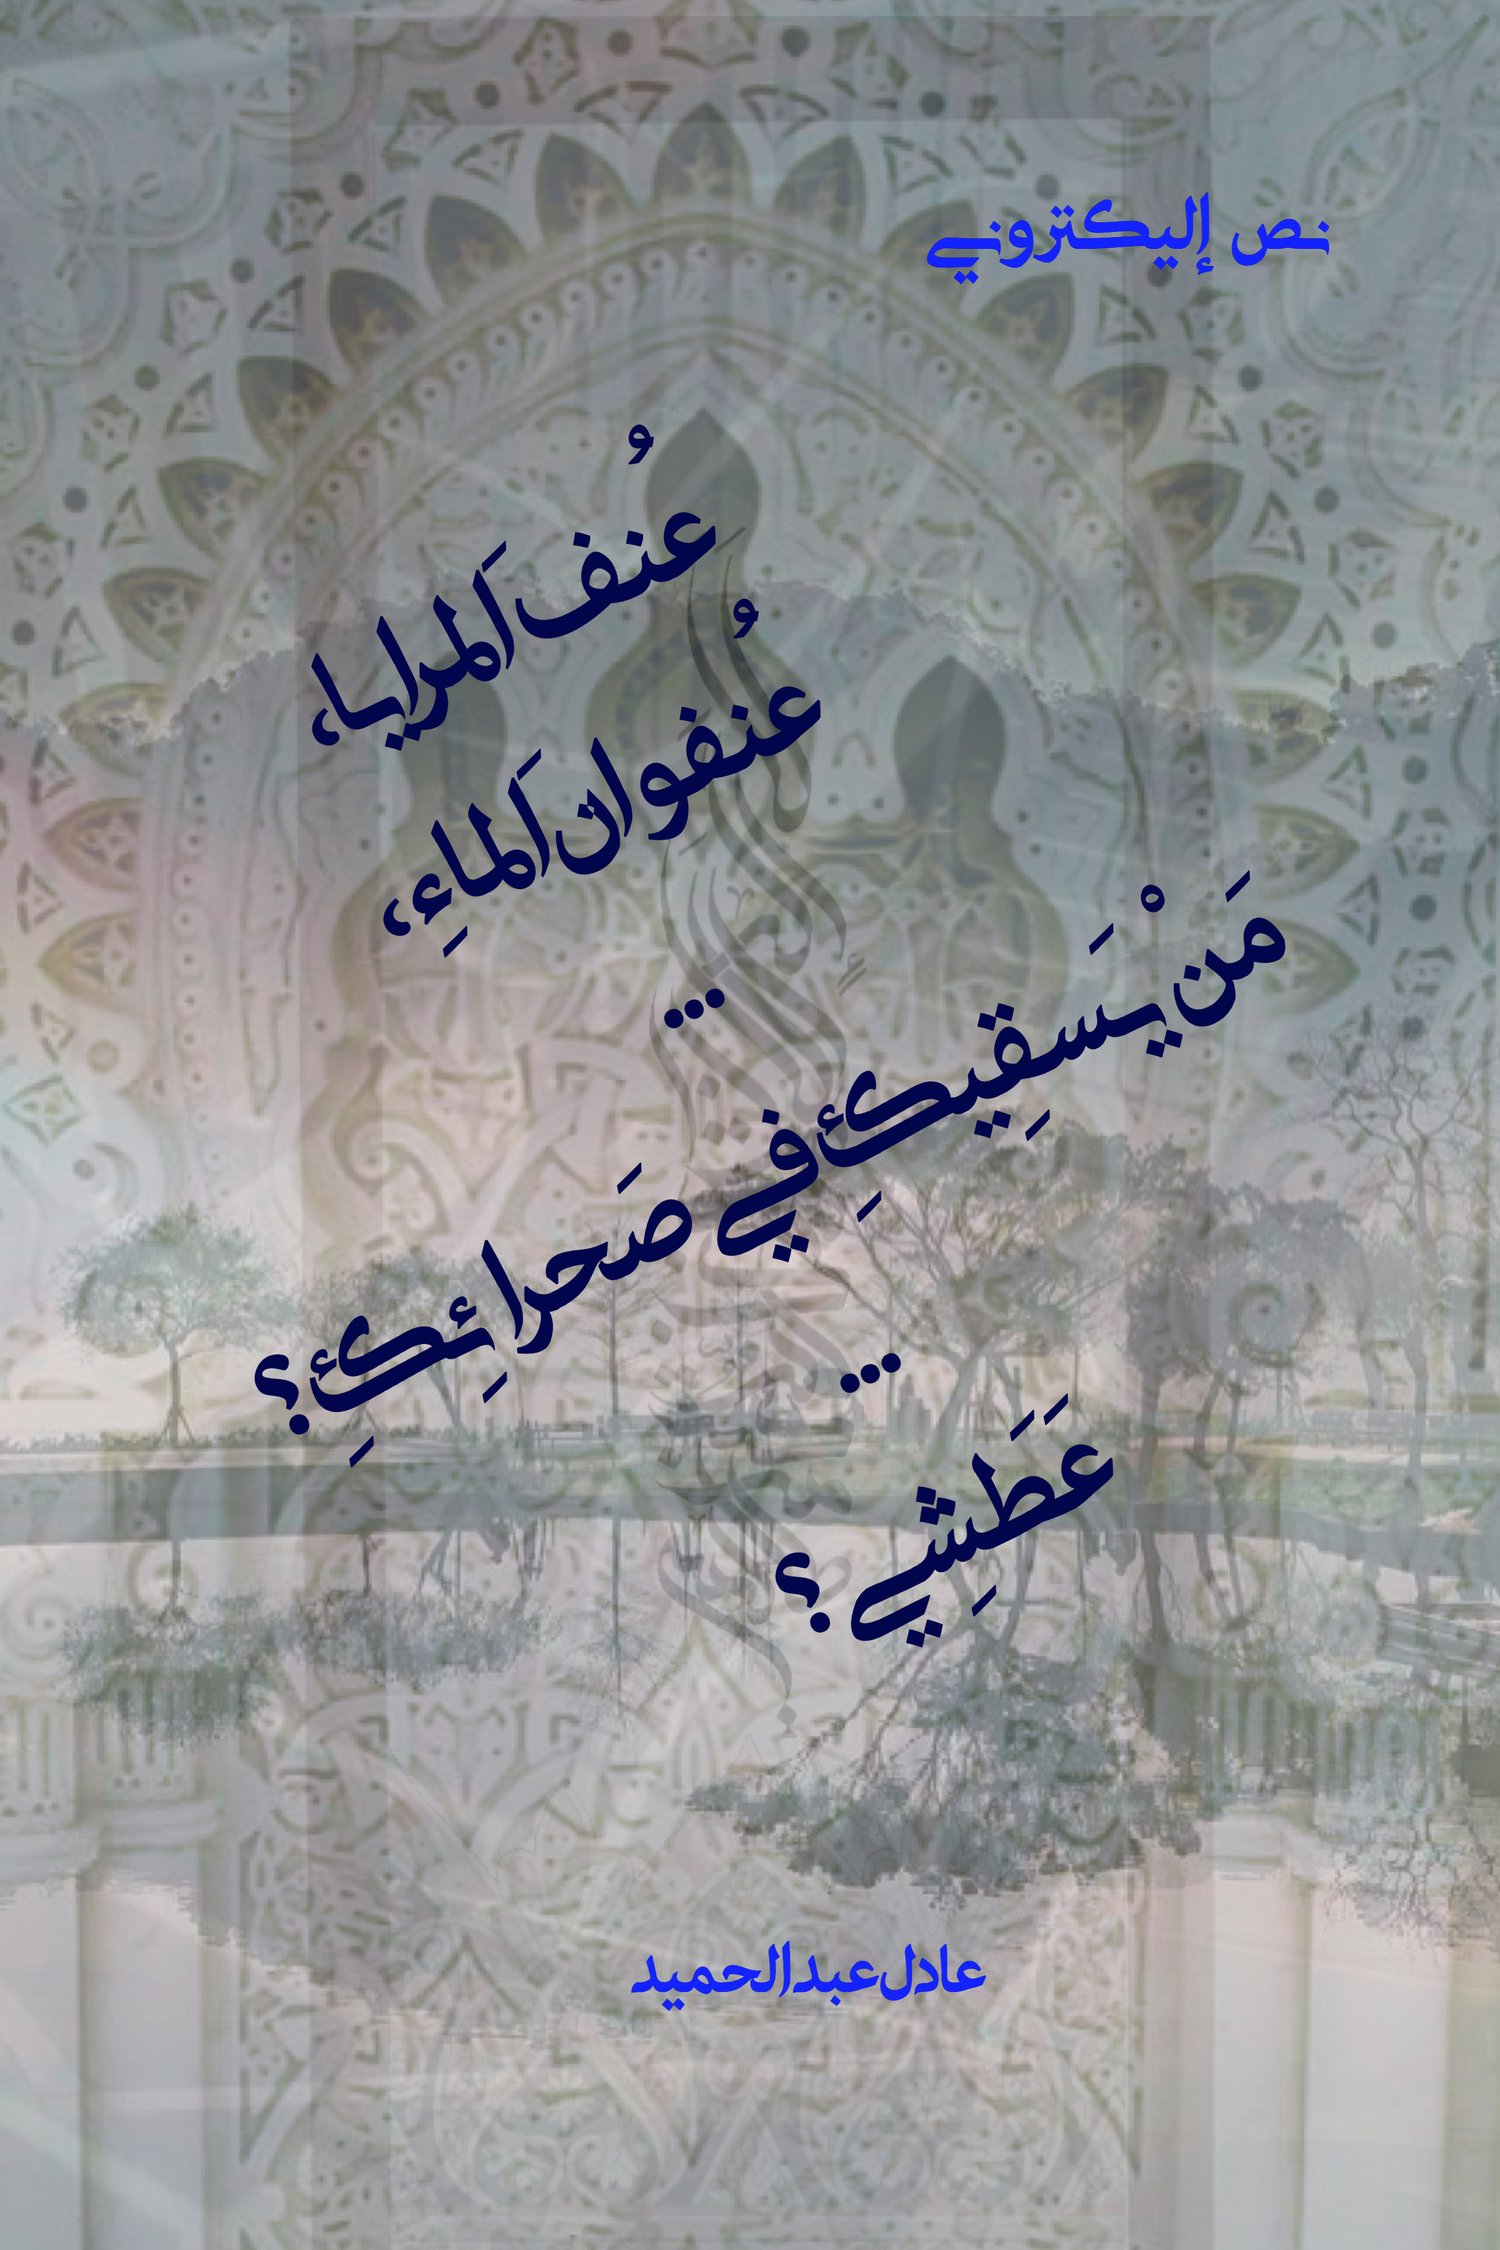 نص إليكتروني
عُنف اَلمرايا،
عُنفَوِان اَلماءِ،
...
مَنْ يسَقِيكِ في صَحرائِكِ؟
...
عَطَشِي؟
عادل عبدالحميد